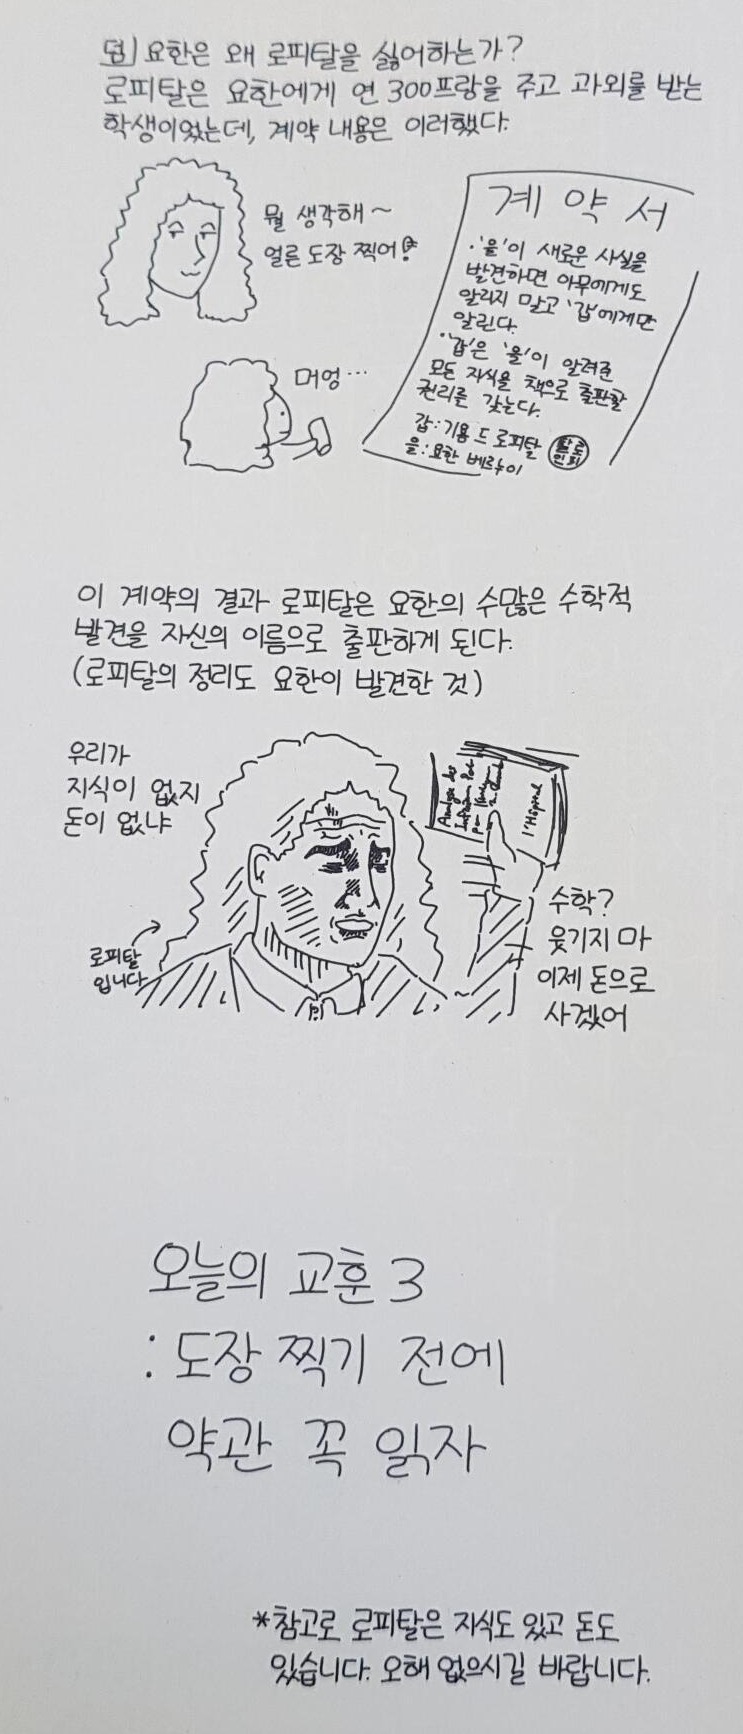 덤) 요한은 왜 로피탈을 싫어하는가?
로피탈은 요한에게 연 300프랑을 주고 과외를 받는
학생이었는데, 계약 내용은 이러했다.
뭘 생각해~
얼른 도장 찍어!
머엉…
계약서
·'을'이 새로운 사실을
발견하면 아무에게도
알리지 말고 '갑'에게만
알린다.
·'갑'은 '을'이 알려준
모든 지식을 책으로 출판할
권리를 갖는다.
갑:기욤 드 로피탈
을:요한 베르누이
이 계약의 결과 로피탈은 요한의 수많은 수학적
발견을 자신의 이름으로 출판하게 된다.
(로피탈의 정리도 요한이 발견한 것)
우리가
지식이 없지
돈이 없냐
로피탈
입니다
Analyse des
l'Hôpital
수학?
웃기지 마
이제 돈으로
사겠어
오늘의 교훈 3
: 도장 찍기 전에
약관 꼭 읽자
*참고로 로피탈은 지식도 있고 돈도
있습니다. 오해 없으시길 바랍니다.